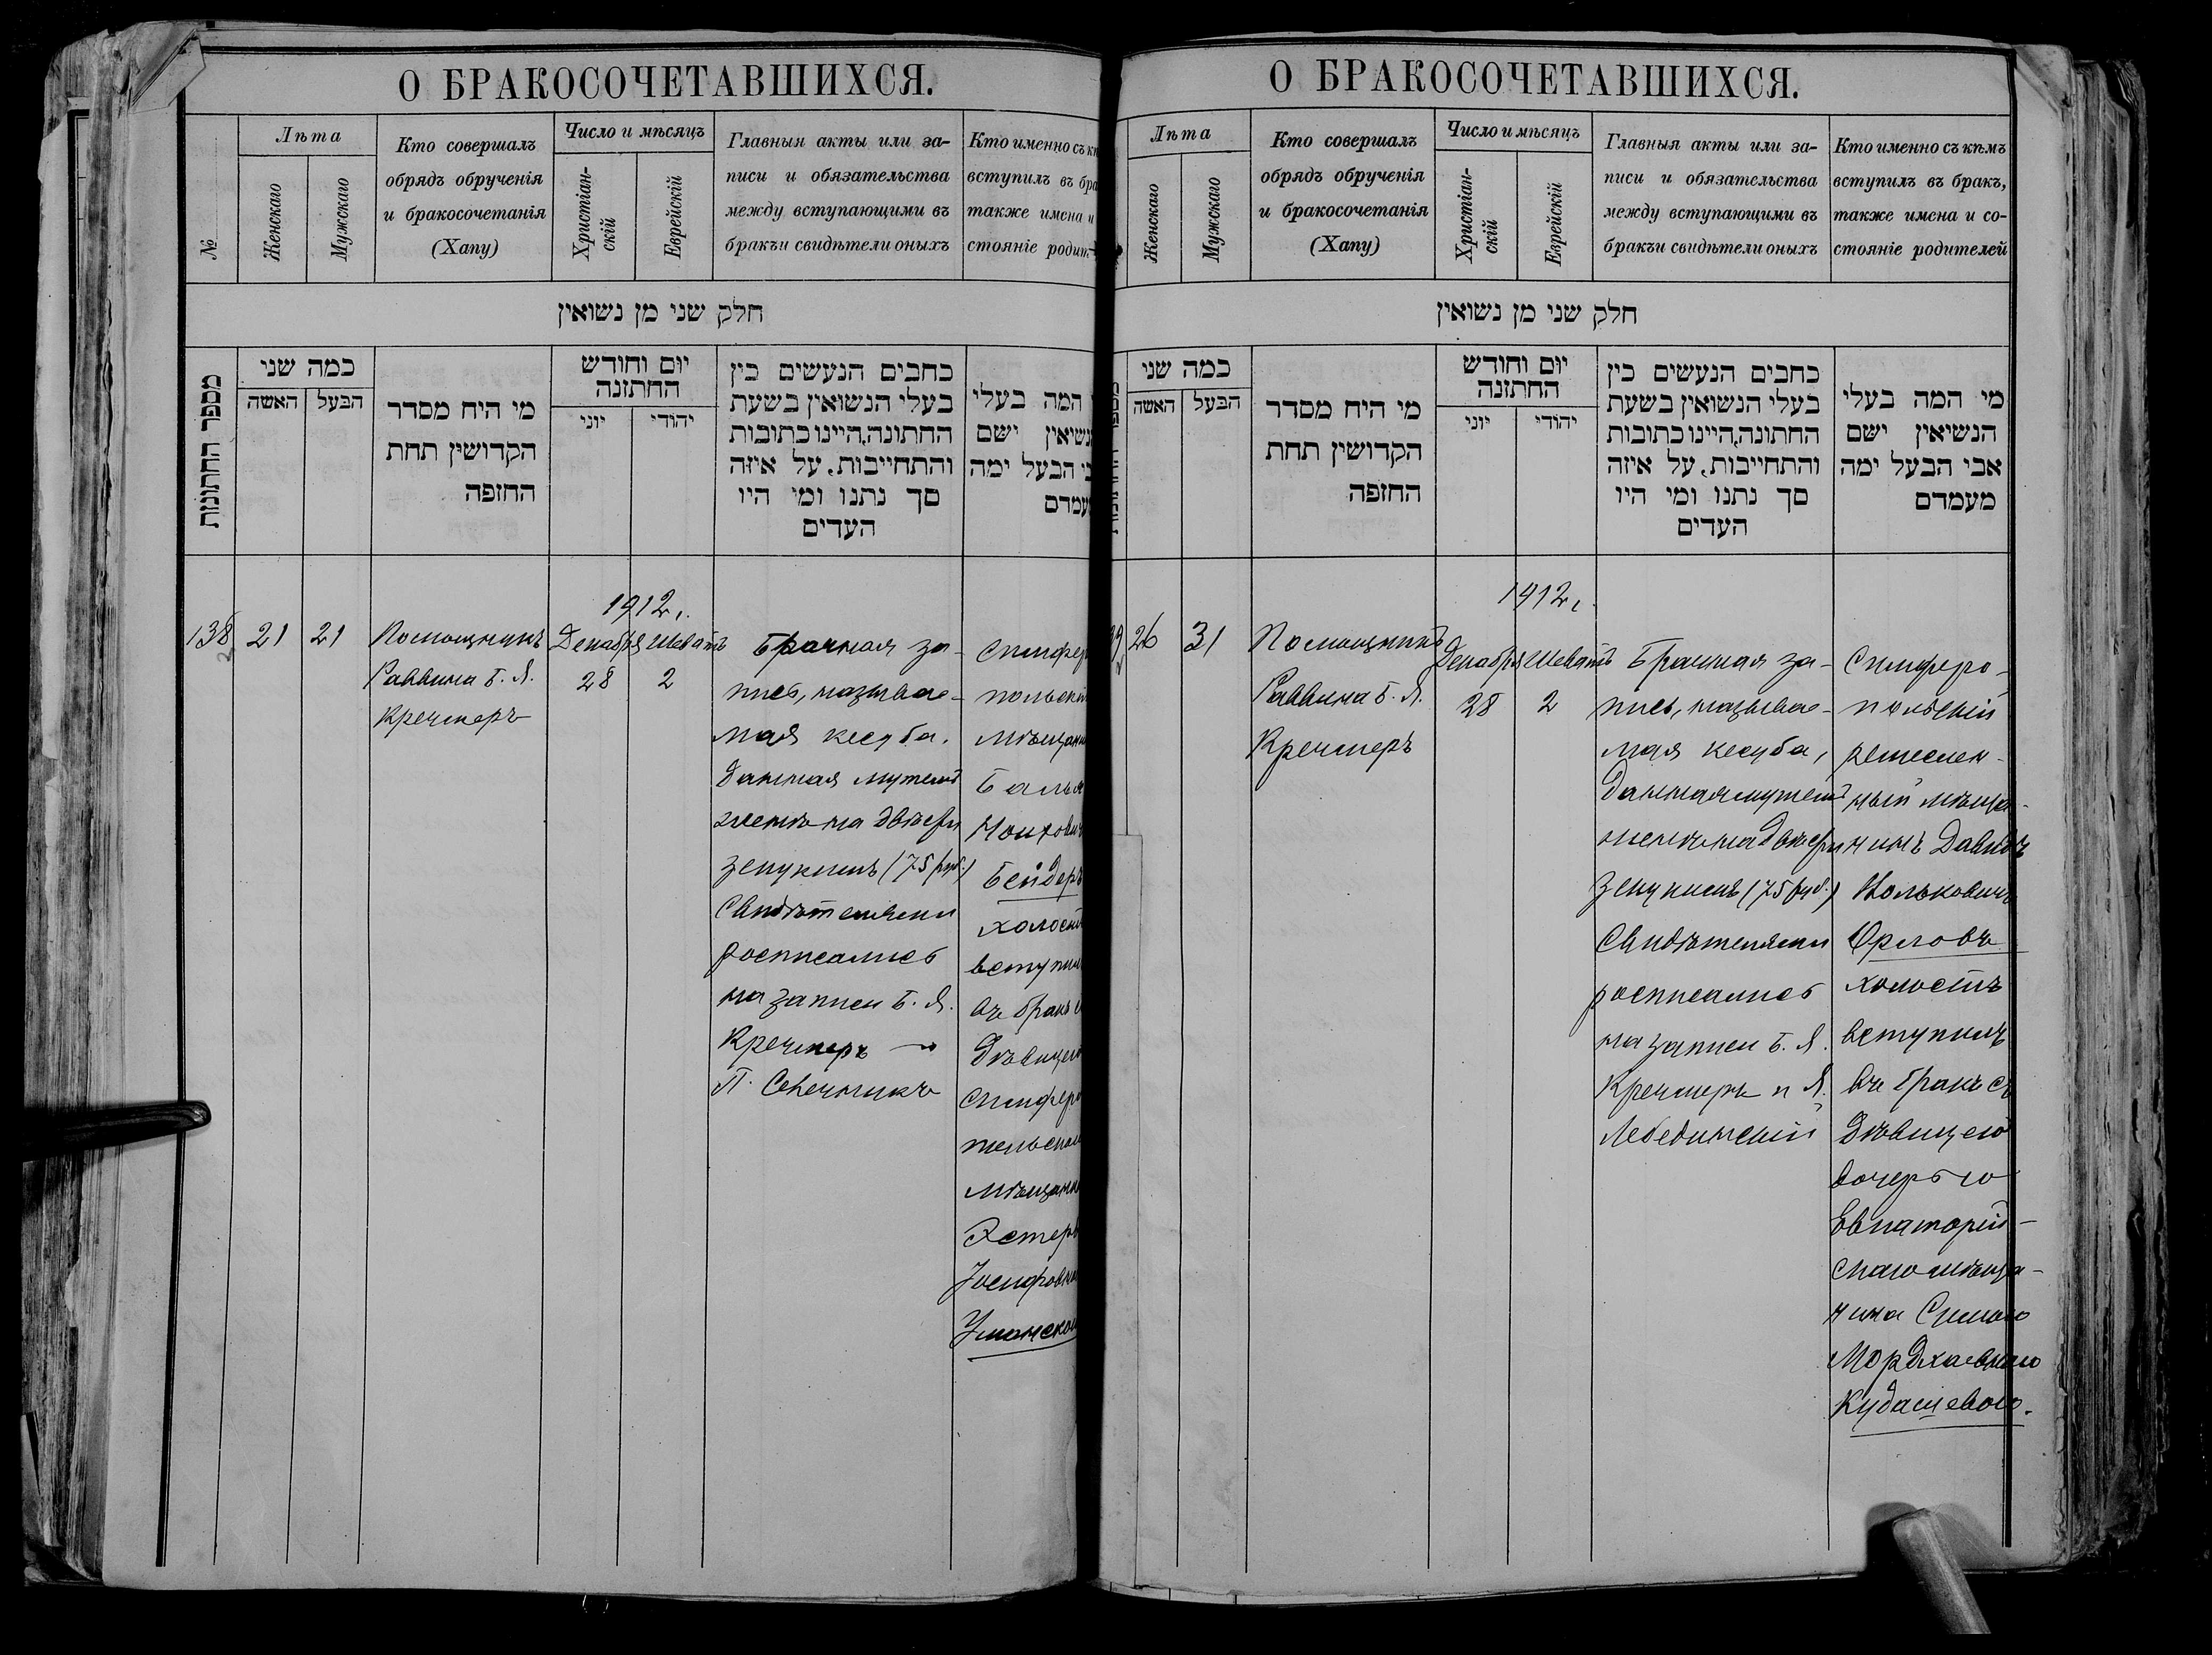 О БРАКОСОЧЕТАВШИХСЯ.
№
Лѣта
Женскаго
Мужскаго
Кто совершалъ
обрядъ обрученія
и бракосочетанія
(Хапу)
Число и мѣсяцъ
Христіан-
скій
Еврейскій
Главныя акты или за-
писи и обязательства
между вступающими въ
бракъи свидѣтели оныхъ
Кто именно съ
вступилъ въ
также имена и
стояніе
חלק שני מן נשואין
מספר החתונות
כמה שני
האשה
הבעל
מי היח מסדר
הקדושין תחת
החזפה
יום וחודש
החתזנה
יוני
יהודי
כחבים הנעשים כין
בעלי הנשואין בשעת
החתונה,היינו כתובות
והתחייבות, על איזה
סך נתנו ומי היו
העדים
המה בעלי
ישם
הבעל ימה
1912 г.
138
21
21
Помощникъ
Раввина Б. Я.
Кречмеръ
Декабря
28
Шеватъ
2
Брачная за-
пись, называе-
мая кесуба,
данная мужемъ
женѣ на двѣсти
зекукимъ (75 руб.)
Свидѣтелями
росписались
на записи Б. Я.
Кречмеръ
П. Свечникъ
Бейдеръ
вступил
въ бракъ
О БРАКОСОЧЕТАВШИХСЯ.
Лѣта
Женскаго
Мужскаго
Кто совершалъ
обрядъ обрученія
и бракосочетанія
(Хапу)
Число и мѣсяцъ
Христіан-
скій
Еврейскій
Главныя акты или за-
писи и обязательства
между вступающими въ
бракъи свидѣтели оныхъ
Кто именно съ кѣмъ
вступилъ въ бракъ,
также имена и со-
стояніе родителей
חלק שני מן נשואין
כמה שני
האשה
הבעל
מי היח מסדר
הקדושין תחת
החזפה
יום וחודש
החתזנה
יוני
יהודי
כחבים הנעשים כין
בעלי הנשואין בשעת
החתונה,היינו כתובות
והתחייבות, על איזה
סך נתנו ומי היו
העדים
מי המה בעלי
הנשיאין ישם
אבי הבעל ימה
מעמדם
1912 г.
26
31
Помощникъ
Раввина Б. Я.
Кречмеръ
Декабря
28
Шеватъ
2
Брачная за-
пись, называе-
мая кесуба,
данная мужемъ
женѣ на двѣсти
зекукимъ (75 руб.)
Свидѣтелями
росписались
на записи Б. Я.
Кречмеръ и Я.
Лебединскій
Симферо-
польскій
ремеслен-
ный мѣща-
нинъ Давидъ
Орловъ
холостъ
вступилъ
въ бракъ съ
дѣвицею
дочерью
Евпаторій-
скаго мѣща-
нина Симою
Мордхаевною
Кудасцевою.